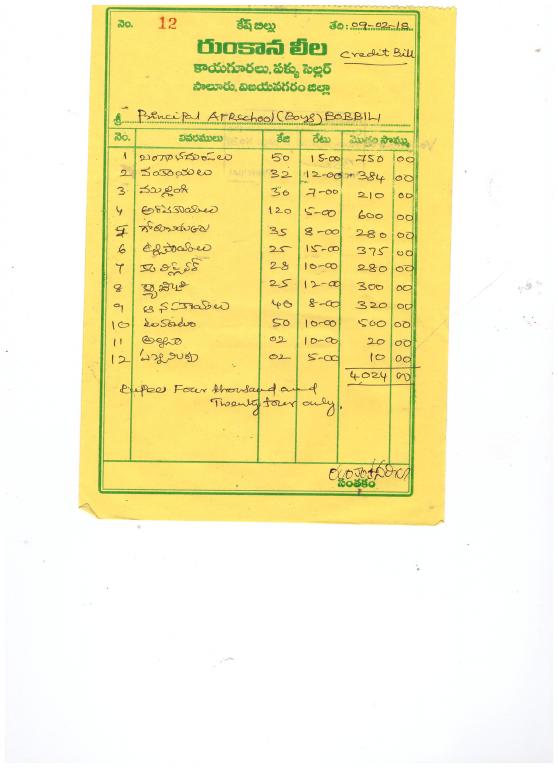 నెం. 12 కేష్ బిల్లు తేది: 09-02-18
రుంకాన లీల Credit Bill
కాయగూరలు, పళ్ళు సెల్లర్
సాలూరు, విజయనగరం జిల్లా
శ్రీ Principal APRschool (Boys) BOBBILI
నెం. వివరములు కేజి రేటు మొత్తం సొమ్ము
1 బంగాళదుంపలు 50 15-00 750 00
2 వంకాయలు 32 12-00 384 00
3 ముల్లంగి 30 7-00 210 00
4 అరటికాయలు 120 5-00 600 00
5 35 8-00 280 00
6 ఉల్లిపాయలు 25 15-00 375 00
7 28 10-00 280 00
8 క్యాబేజి 25 12-00 300 00
9 ఆనపకాయలు 40 8-00 320 00
10 టమాటా 50 10-00 500 00
11 అల్లం 02 10-00 20 00
12 02 5-00 10 00
4024 00
Rupees Four thousand and
Twenty four only.
సంతకం